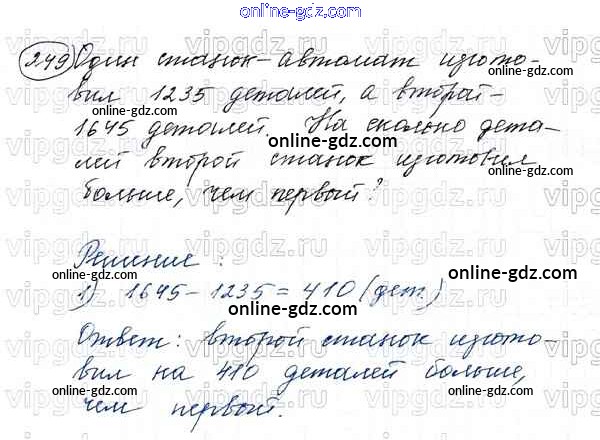 online-gdz.com
249 Один станок-автомат изгото-
вил 1235 деталей, а второй -
1645 деталей. На сколько дета-
online-gdz.com
лей второй станок изготовил
online-gdz.com
больше, чем первый?
vipgdz.ru
Решение:
online-gdz.com
1) 1645 - 1235 = 410 (дет.)
online-gdz.com
Ответ: второй станок изгото-
вил на 410 деталей больше,
online-gdz.com
чем первый.
online-gdz.com